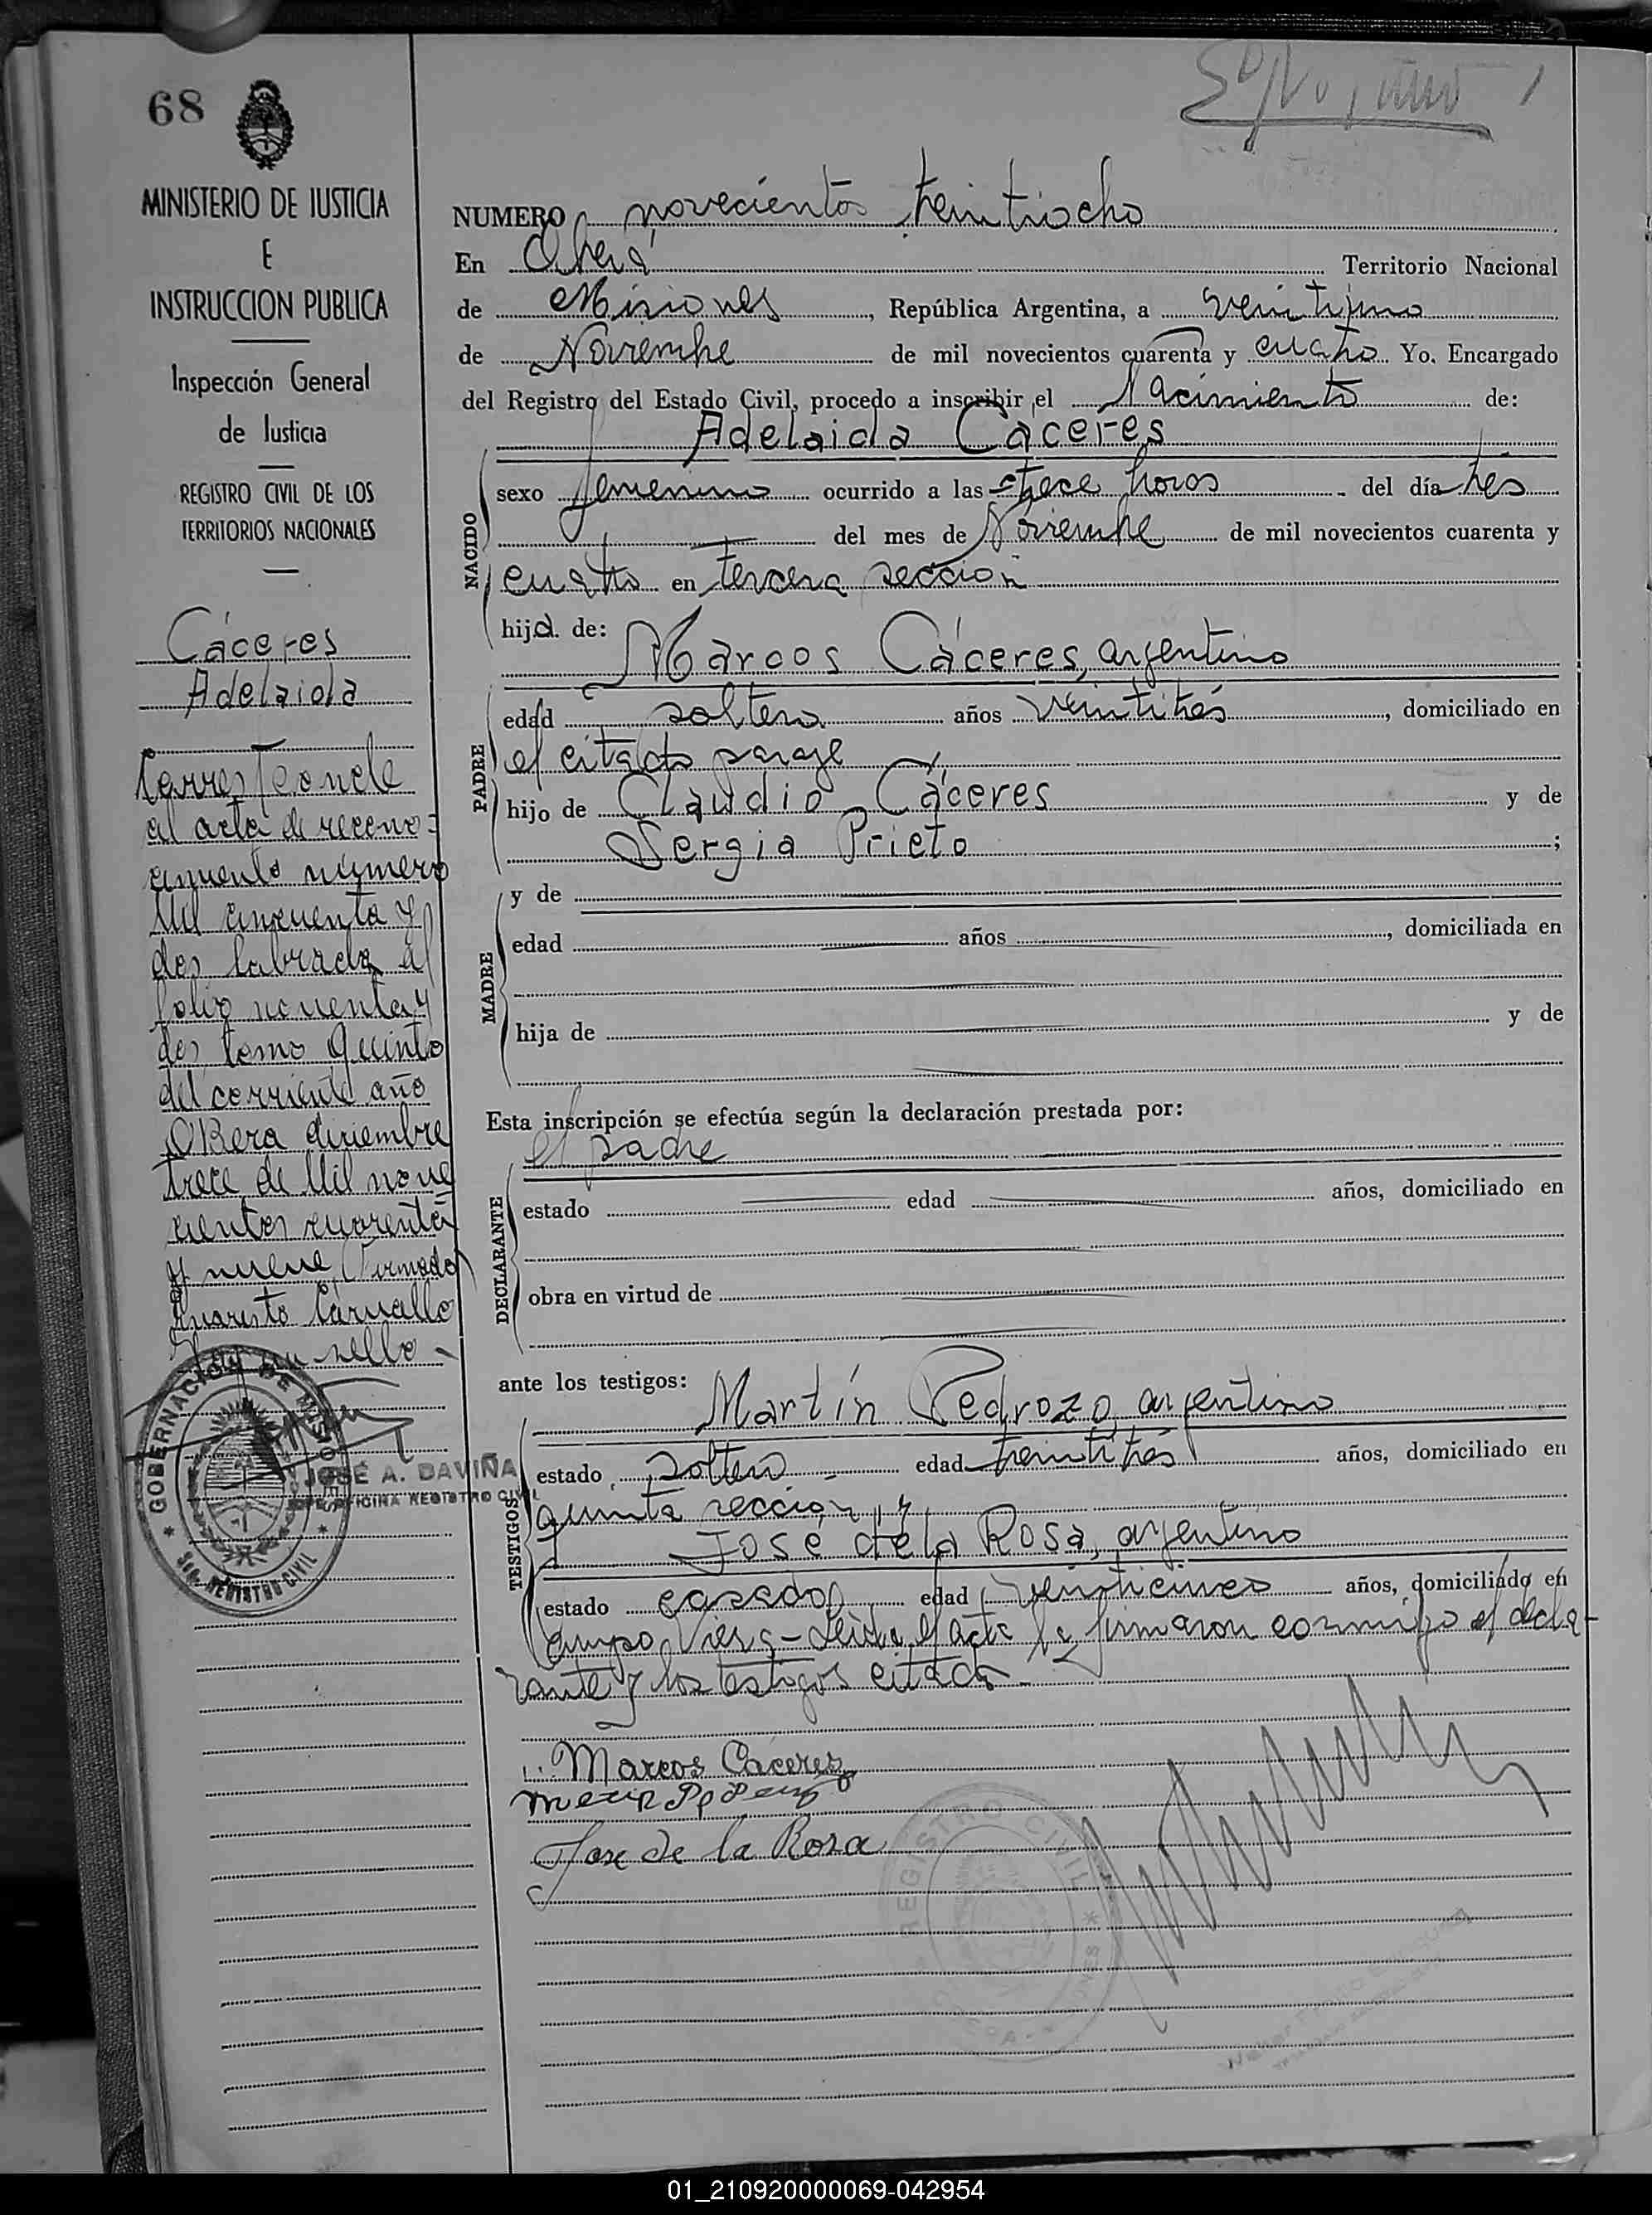 68
MINISTERIO DE JUSTICIA
E
INSTRUCCION PUBLICA
Inspección General
de Justicia
REGISTRO CIVIL DE LOS
TERRITORIOS NACIONALES
Cáceres
Adelaida
Corresponde
al acta de recono=
cimiento número
Mil cincuenta y
dos labrada al
folio noventa y
dos tomo Quinto
del corriente año
OBera diciembre
trece de Mil nove
cientos cuarenta
y nueve Firmado
Evaristo Carvallo
Hay un sello -
GOBERNACION DE MISIONES
REGISTRO CIVIL
JOSÉ A. DAVIÑA
JEFE OFICINA REGISTRO CIVIL
NUMERO novecientos treintiocho
En Oberá Territorio Nacional
de Misiones, República Argentina, a veintiuno
de Noviembre de mil novecientos cuarenta y cuatro Yo. Encargado
del Registro del Estado Civil, procedo a inscribir el Nacimiento de:
Adelaida Cáceres
NACIDO
sexo femenino ocurrido a las trece horas del día tres
del mes de Noviembre de mil novecientos cuarenta y
cuatro en tercera sección
hija de:
Marcos Cáceres, argentino
PADRE
edad soltero años veintitrés, domiciliado en
el citado paraje
hijo de Claudio Cáceres y de
Sergia Prieto ;
MADRE
y de
edad años , domiciliada en
hija de y de
Esta inscripción se efectúa según la declaración prestada por:
el padre
DECLARANTE
estado edad años, domiciliado en
obra en virtud de
ante los testigos:
Martín Pedrozo, argentino
TESTIGOS
estado soltero edad treintitrés años, domiciliado en
quinta sección y
José de la Rosa, argentino
estado casado edad veinticinco años, domiciliado en
campo Viera - Leída el acta la firmaron conmigo el decla-
rante y los testigos citados -
Marcos Caceres
Jose de la Rosa
REGISTRO CIVIL
01_210920000069-042954